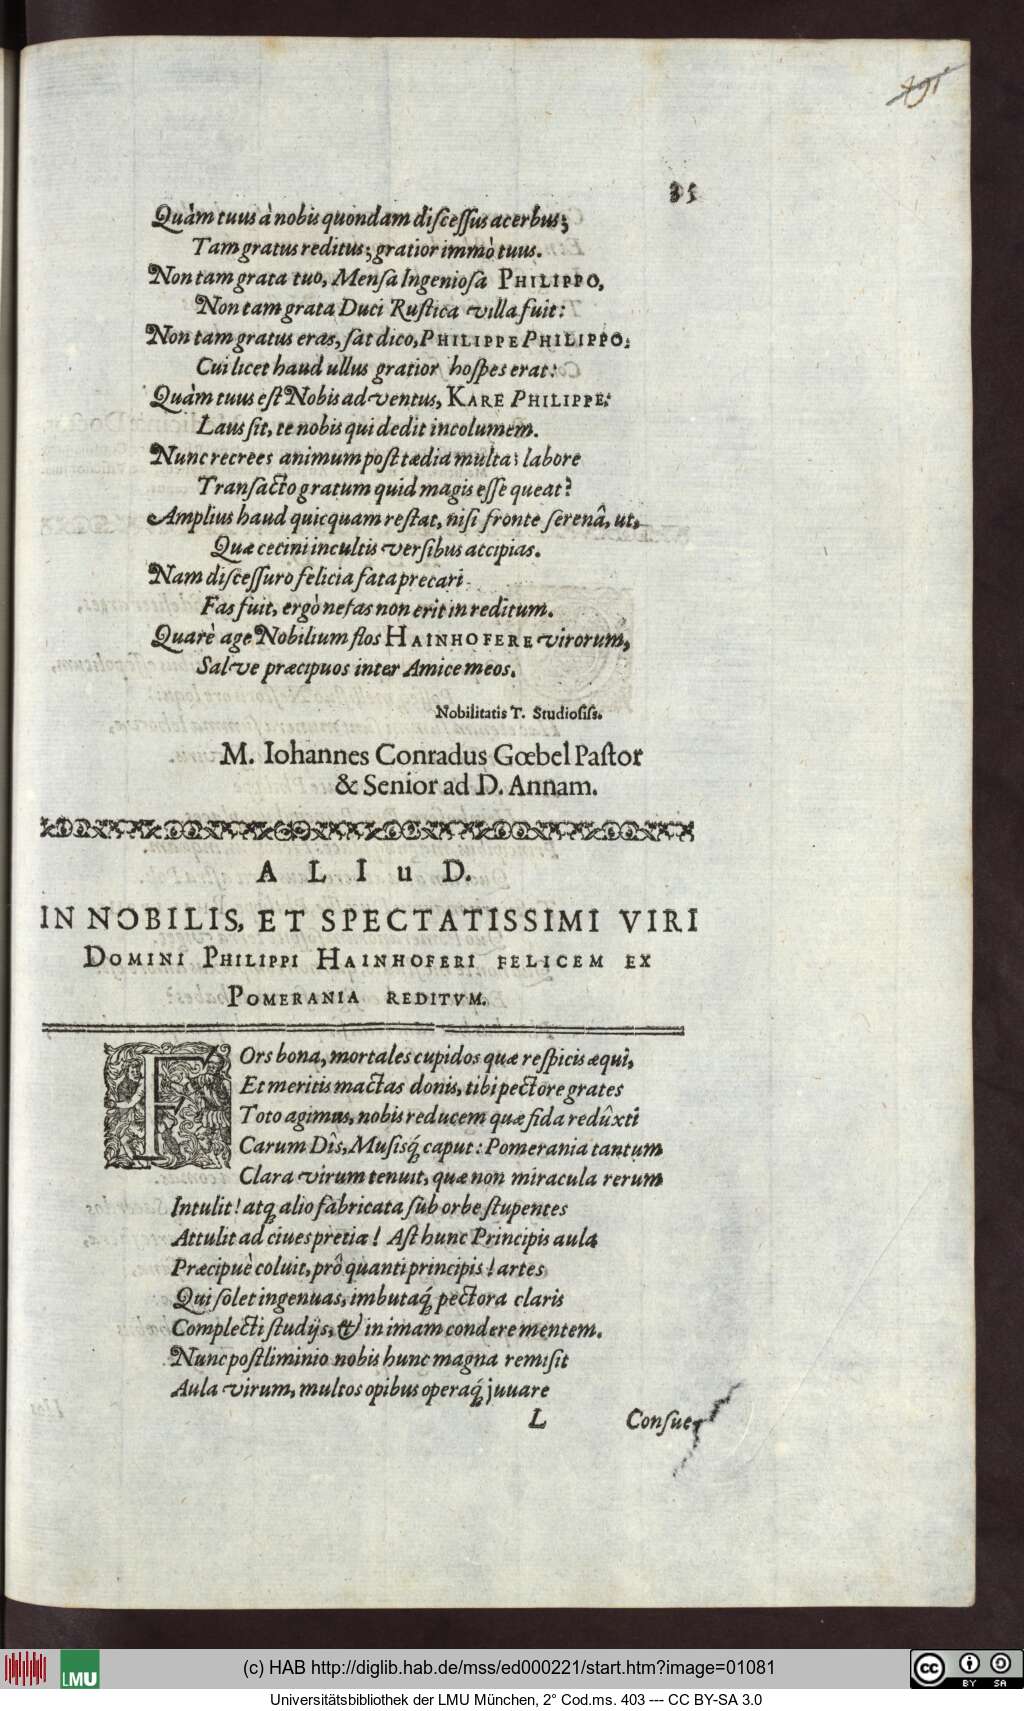 191
35
Quàm tuus à nobis quondam discessus acerbus;
Tam gratus reditus; gratior immò tuus.
Non tam grata tuo, Mensa Ingeniosa PHILIPPO,
Non tam grata Duci Rustica villa fuit:
Non tam gratus eras, sat dico, PHILIPPE PHILIPPO:
Cui licet haud ullus gratior hospes erat:
Quàm tuus est Nobis adventus, KARE PHILIPPE:
Laus sit, te nobis qui dedit incolumem.
Nunc recrees animum post tædia multa; labore
Transacto gratum quid magis esse queat?
Amplius haud quicquam restat, nisi fronte serenâ, ut,
Quæ cecini incultis versibus accipias.
Nam discessuro felicia fata precari
Fas fuit, ergò nefas non erit in reditum.
Quarè age Nobilium flos HAINHOFERE virorum,
Salve præcipuos inter Amice meos.
Nobilitatis T. Studiosiss.
M. Iohannes Conradus Gœbel Pastor
& Senior ad D. Annam.
ALIuD.
IN NOBILIS, ET SPECTATISSIMI VIRI
DOMINI PHILIPPI HAINHOFERI FELICEM EX
POMERANIA REDITVM.
FOrs bona, mortales cupidos quæ respicis æqui,
Et meritis mactas donis, tibi pectore grates
Toto agimus, nobis reducem quæ fida redûxti
Carum Dîs, Musisq́; caput: Pomerania tantum
Clara virum tenuit, quæ non miracula rerum
Intulit! atq; alio fabricata sub orbe stupentes
Attulit ad cives pretia! Ast hunc Principis aula
Præcipuè coluit, prô quanti principis! artes
Qui solet ingenuas, imbutaq́; pectora claris
Complecti studijs, & in imam condere mentem.
Nunc postliminio nobis hunc magna remisit
Aula virum, multos opibus operaq́; juuare
L Consue-
LMU
(c) HAB http://diglib.hab.de/mss/ed000221/start.htm?image=01081
cc BY SA
Universitätsbibliothek der LMU München, 2° Cod.ms. 403 --- CC BY-SA 3.0